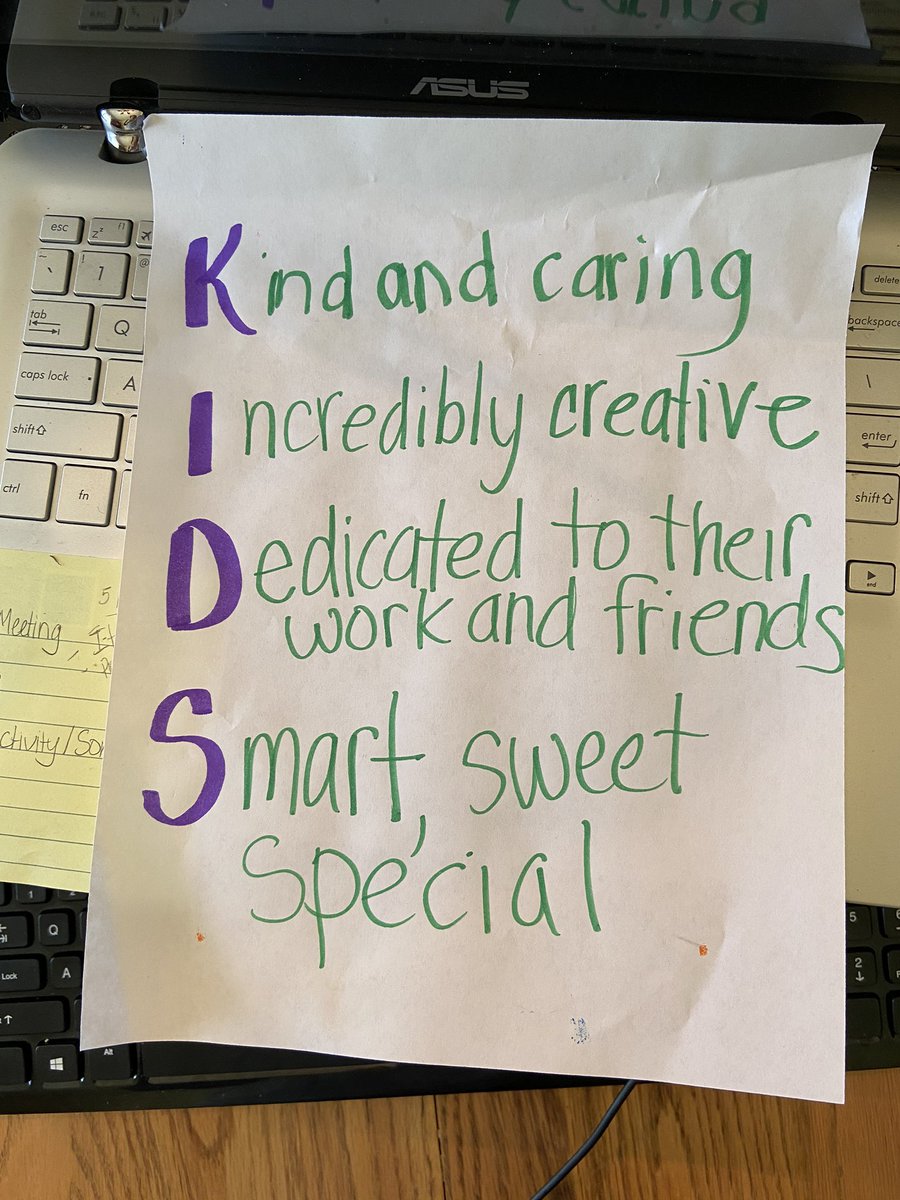 ASUS
Kind and caring
Incredibly creative
Dedicated to their
work and friends
Smart, sweet
special
Meeting
5
esc
f1
1
tab
Q
caps lock
A
shift
ctrl
fn
delete
backspace
\
enter
shift
end
1
2
Q
Lock
A
Alt
5
6
2